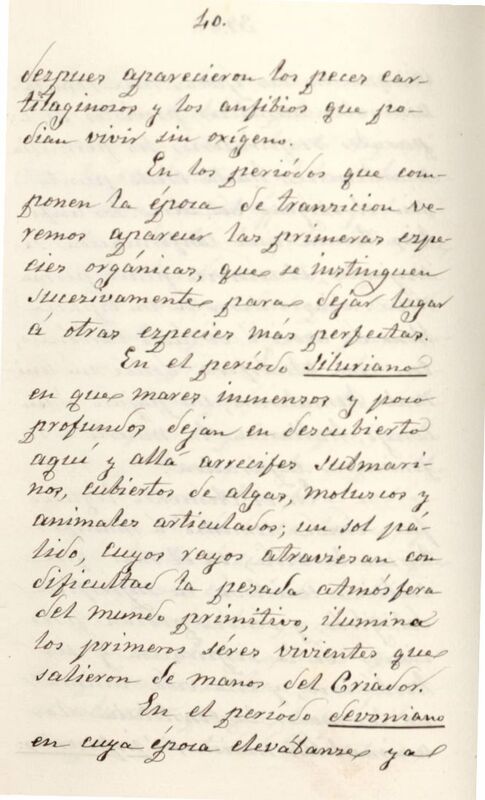 40.
despues aparecieron los peces car-
tilaginosos y los anfibios que po-
dian vivir sin orígeno.
En los periódos que com-
ponen la época de transicion ve-
remos aparecer las primeras espe-
cies orgánicas, que se instinguen
sucesivamente para dejar lugar
á otras especies más perfectas.
En el período Siluriano
en que mares inmensos y poco
profundos dejan en descubierto
aquí y allá arrecifes submari-
nos, cubiertos de algas, moluscos y
animales articulados; un sol pá-
lido, cuyos rayos atraviesan con
dificultad la pesada atmósfera
del mundo primitivo, ilumina
los primeros séres vivientes que
salieron de manos del Criador.
En el período devoniano
en cuya época elevábanse ya